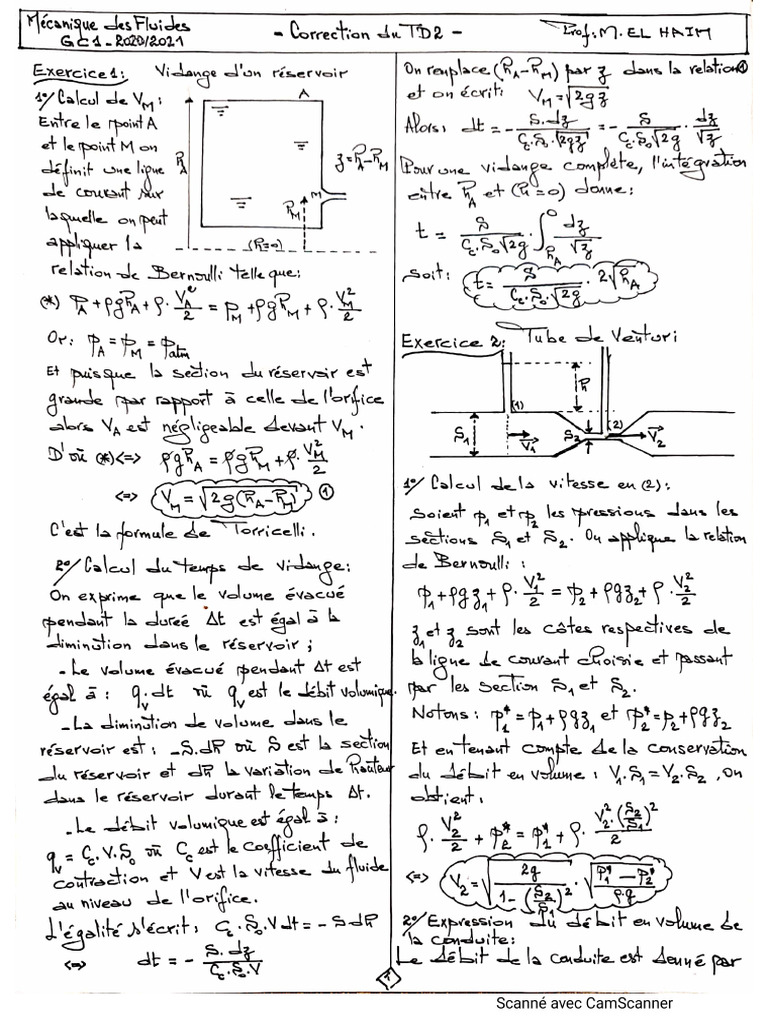 Mécanique des Fluides
GC1-2020/2021
- Correction du TD2 -
Prof: M. EL HAIM
Exercice 1: Vidange d'un réservoir
1°/ Calcul de V_M:
Entre le point A
et le point M on
définit une ligne
de courant sur
laquelle on peut
appliquer la
relation de Bernoulli telle que:
A
h_A
z=h_A-h_M
M
h_M
(h=0)
(*) P_A+ρgh_A+ρ.V_A²/2 = P_M+ρgh_M+ρ.V_M²/2
Or: P_A = P_M = P_atm
Et puisque la section du réservoir est
grande par rapport à celle de l'orifice
alors V_A est négligeable devant V_M.
D'où (*) <=> ρgh_A = ρgh_M + ρ.V_M²/2
<=> V_M = √(2g(h_A-h_M)) ①
C'est la formule de Torricelli.
2°/ Calcul du temps de vidange:
On exprime que le volume évacué
pendant la dureé Δt est égal à la
diminution dans le réservoir;
- Le volume évacué pendant Δt est
égal à: q_v.dt où q_v est le débit volumique.
- La diminution de volume dans le
réservoir est: -S.dh où S est la section
du réservoir et dh la variation de hauteur
dans le réservoir durant le temps Δt.
- Le débit volumique est égal à:
q_v = C_c.V.S_0 où C_c est le coefficient de
contraction et V est la vitesse du fluide
au niveau de l'orifice.
L'égalité s'écrit: C_c.S_0.V dt = -S dh
<=> dt = - S.dz/(C_c.S_0.V)
On remplace (h_A-h_M) par z dans la relation ①
et on écrit: V_M = √(2gz)
Alors: dt = - S.dz/(C_c.S_0.√(2gz)) = - S/(C_c.S_0√(2g)) . dz/√z
Pour une vidange complète, l'intégration
entre h_A et (h=0) donne:
t = S/(C_c.S_0√(2g)) . ∫_{h_A}^{0} dz/√z
soit: t = S/(C_c.S_0.√(2g)) . 2√h_A
Exercice 2: Tube de Venturi
h
(1)
(2)
S_1
V_1
S_2
V_2
1°/ Calcul de la vitesse en (2):
Soient p_1 et p_2 les pressions dans les
sections S_1 et S_2. On applique la relation
de Bernoulli:
p_1+ρgz_1+ρ.V_1²/2 = p_2+ρgz_2+ρ.V_2²/2
z_1 et z_2 sont les côtes respectives de
la ligne de courant choisie et passant
par les section S_1 et S_2.
Notons: p_1* = p_1+ρgz_1 et p_2* = p_2+ρgz_2
Et en tenant compte de la conservation
du débit en volume: V_1.S_1 = V_2.S_2, on
obtient:
ρ.V_2²/2 + p_2* = p_1* + ρ.V_2².(S_2/S_1)²/2
<=> V_2 = √(2g/(1-(S_2/S_1)²)) . √((p_1*-p_2*)/(ρ.g))
2°/ Expression du débit en volume de
la conduite:
Le débit de la conduite est donné par
1
Scanné avec CamScanner